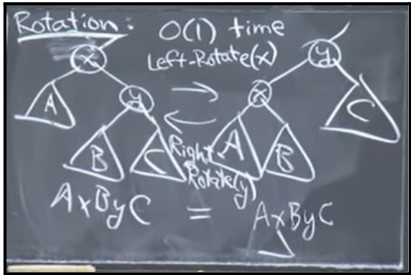 Rotation: O(1) time
Left-Rotate(x)
x y
A y x C
B C A B
Right
Rotate(y)
AxByC = AxByC